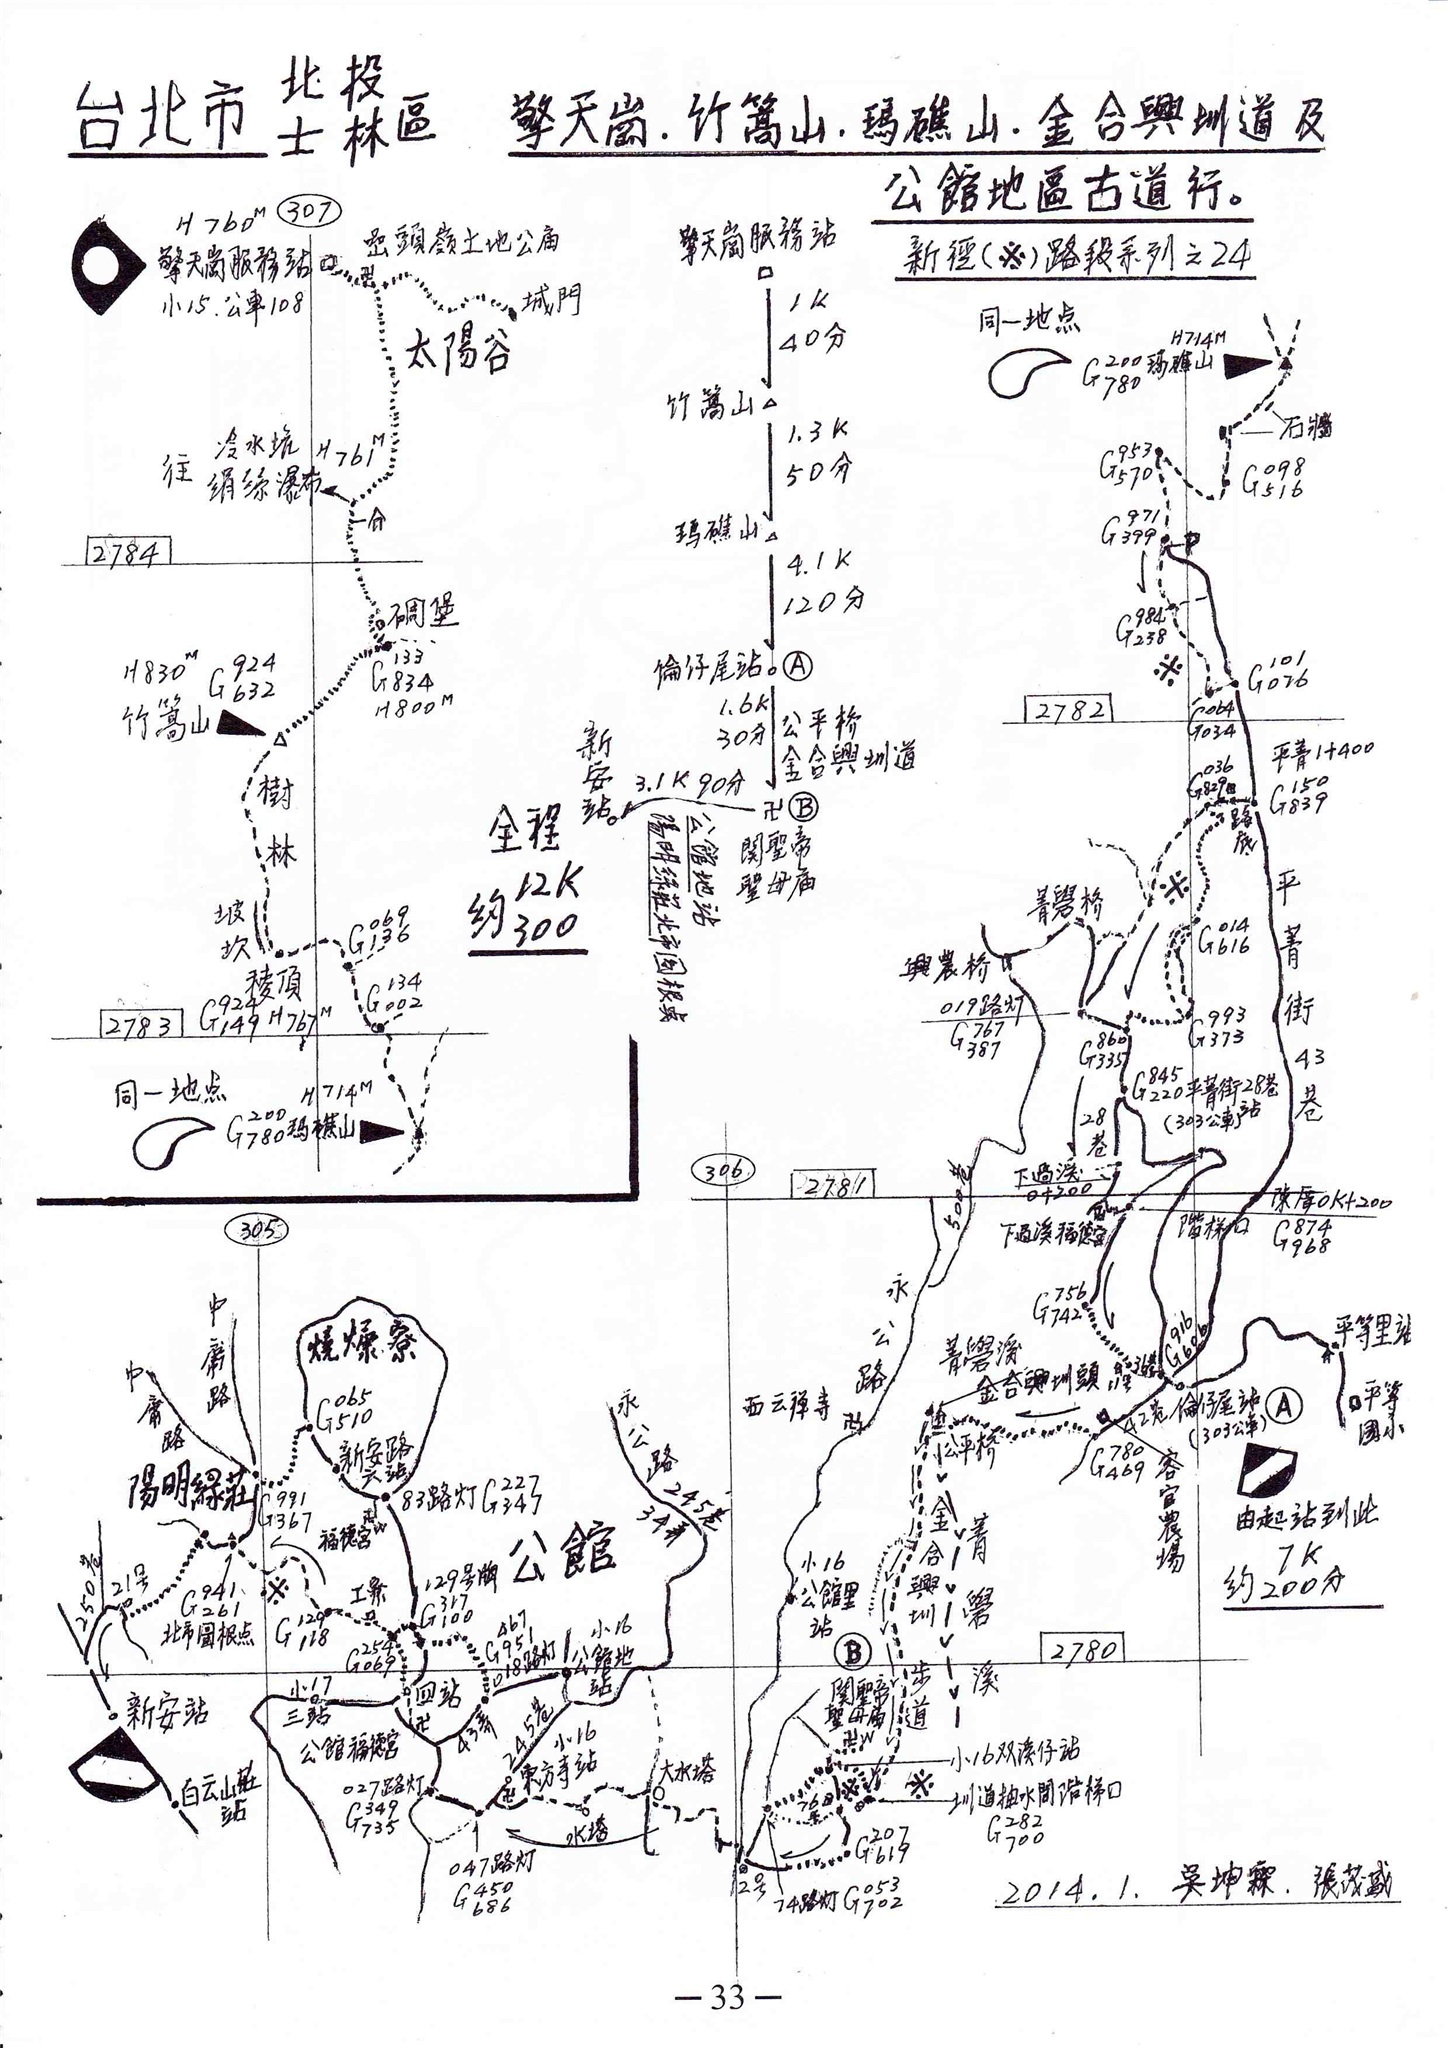 台北市 北投 士林區
擎天崗.竹篙山.瑪礁山.金合興圳道及
公館地區古道行。
新徑(※)路段系列之24
H760M
307
擎天崗服務站
小15.公車108
嵒頭嶺土地公廟
城門
太陽谷
往 冷水坑
絹絲瀑布
H761M
2784
碉堡
G133
834
H800M
H830M
G924
632
竹篙山
樹
林
坡
坎
稜頂
G924
149 H767M
G069
136
G134
002
2783
同一地点
H714M
G200
780 瑪礁山
擎天崗服務站
1K
40分
竹篙山
1.3K
50分
瑪礁山
4.1K
120分
倫仔尾站 A
1.6K
30分
公平桥
金合興圳道
B
関聖帝
聖母庙
3.1K 90分
新安站
公館地站
陽明綠莊北市図根点
全程
約 12K
300
同一地点
H714M
G200
780 瑪礁山
石牆
G098
516
G953
570
G971
399
G984
238
※
G101
026
G064
034
2782
平菁1+400
G150
839
G036
829
路底
平菁街43巷
※
G014
616
菁礐桥
興農桥
019路灯
G767
387
G860
335
G993
373
G845
220 平菁街28巷
(303公車)站
28巷
下過溪
0+200
下過溪福德宮
階梯口
陳厝0K+200
G874
968
306
2781
500巷
永公路
G756
742
G916
606
平等里站
平等
國小
菁礐溪
金合興圳頭
公平桥
42号
倫仔尾站
(303公車)
A
G780
469
容官農場
由起站到此
7K
約200分
西云禅寺
小16
公館里
站
金合興圳步道
菁礐溪
2780
B
関聖帝
聖母庙
小16双溪仔站
※ ※
圳道抽水間階梯口
G282
700
G207
619
74路灯 G053
702
2号
305
中庸路
中庸路
燒㸅寮
G065
510
新安路
站
83路灯 G227
347
福德宮
陽明綠莊
G991
367
250巷
21号
G941
261
北市圖根点
※
G129
118
工寮
G254
069
129号牌
G317
100
公館
G467
951
018路灯
小16
公館地
站
永公路245巷
34弄
新安站
白云山莊
站
小17
三站
四站
公館福德宮
43弄
245巷
小16
東方寺站
027路灯
G349
735
047路灯
G450
686
水塔
大水塔
2014.1. 吳坤霖. 張茂盛
— 33 —